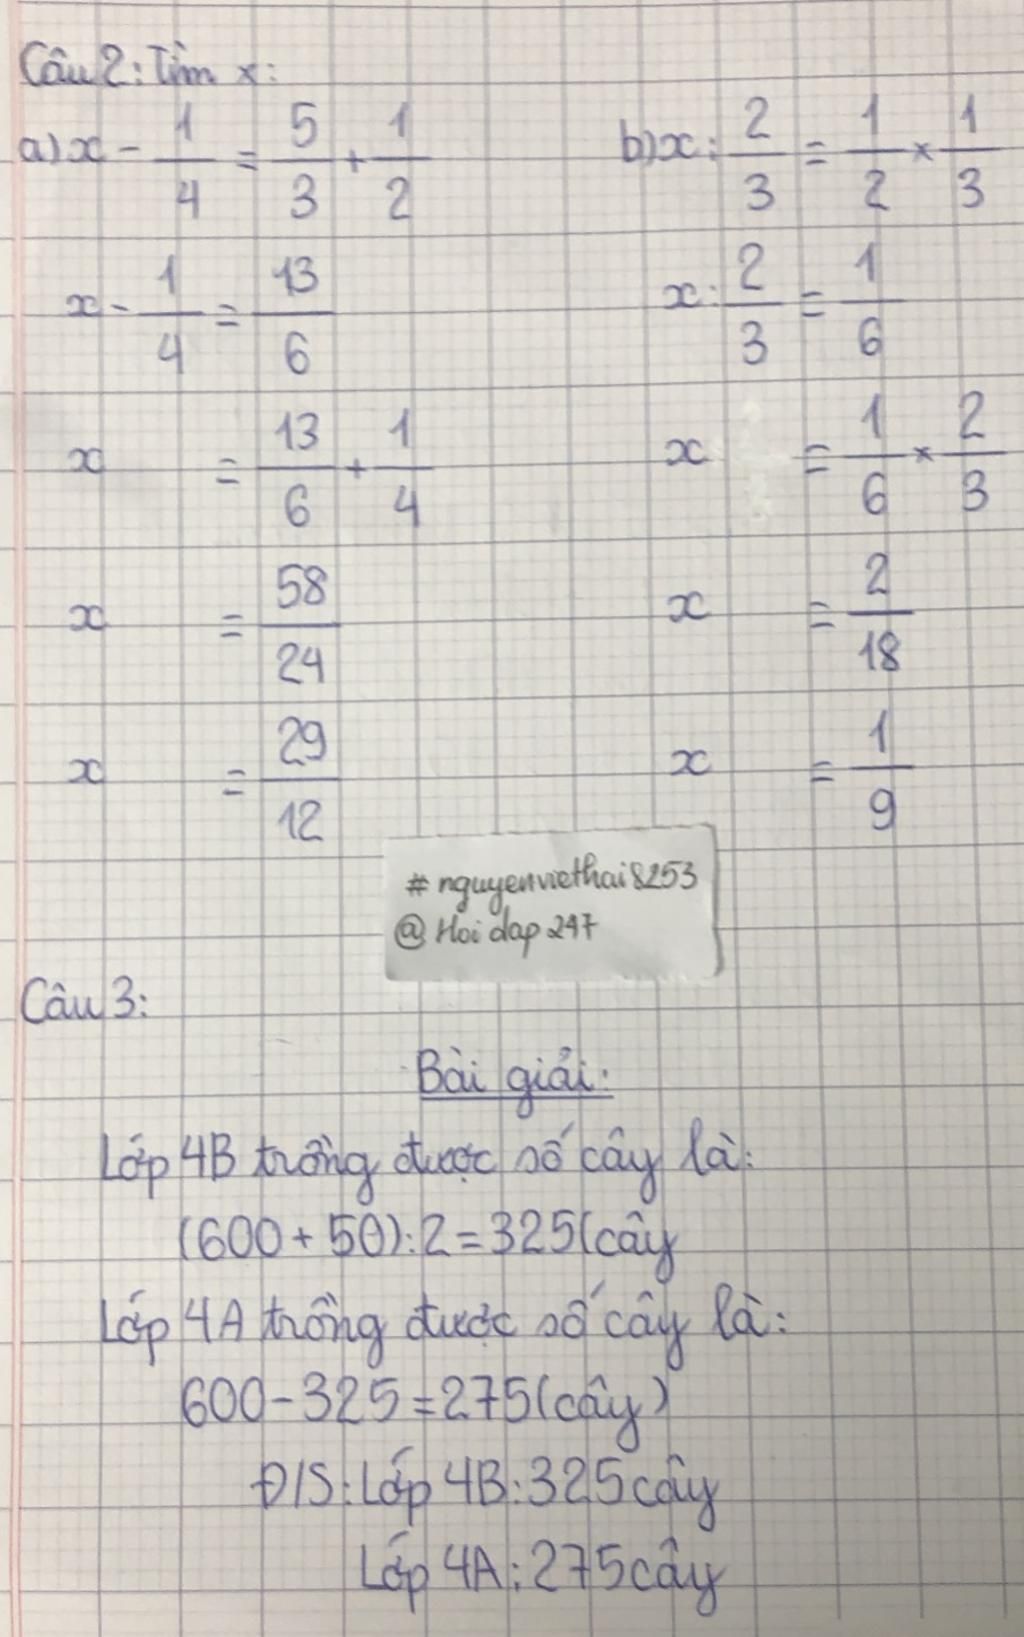 Câu 2: Tìm x:
a) x - 1/4 = 5/3 + 1/2
b) x : 2/3 = 1/2 × 1/3
x - 1/4 = 13/6
x : 2/3 = 1/6
x = 13/6 + 1/4
x = 1/6 × 2/3
x = 58/24
x = 2/18
x = 29/12
x = 1/9
# nguyenviethai8253
@ Hoi dap 247
Câu 3:
Bài giải:
Lớp 4B trồng được số cây là:
(600 + 50) : 2 = 325 (cây
Lớp 4A trồng được số cây là:
600 - 325 = 275 (cây)
Đ/S: Lớp 4B: 325 cây
Lớp 4A: 275 cây